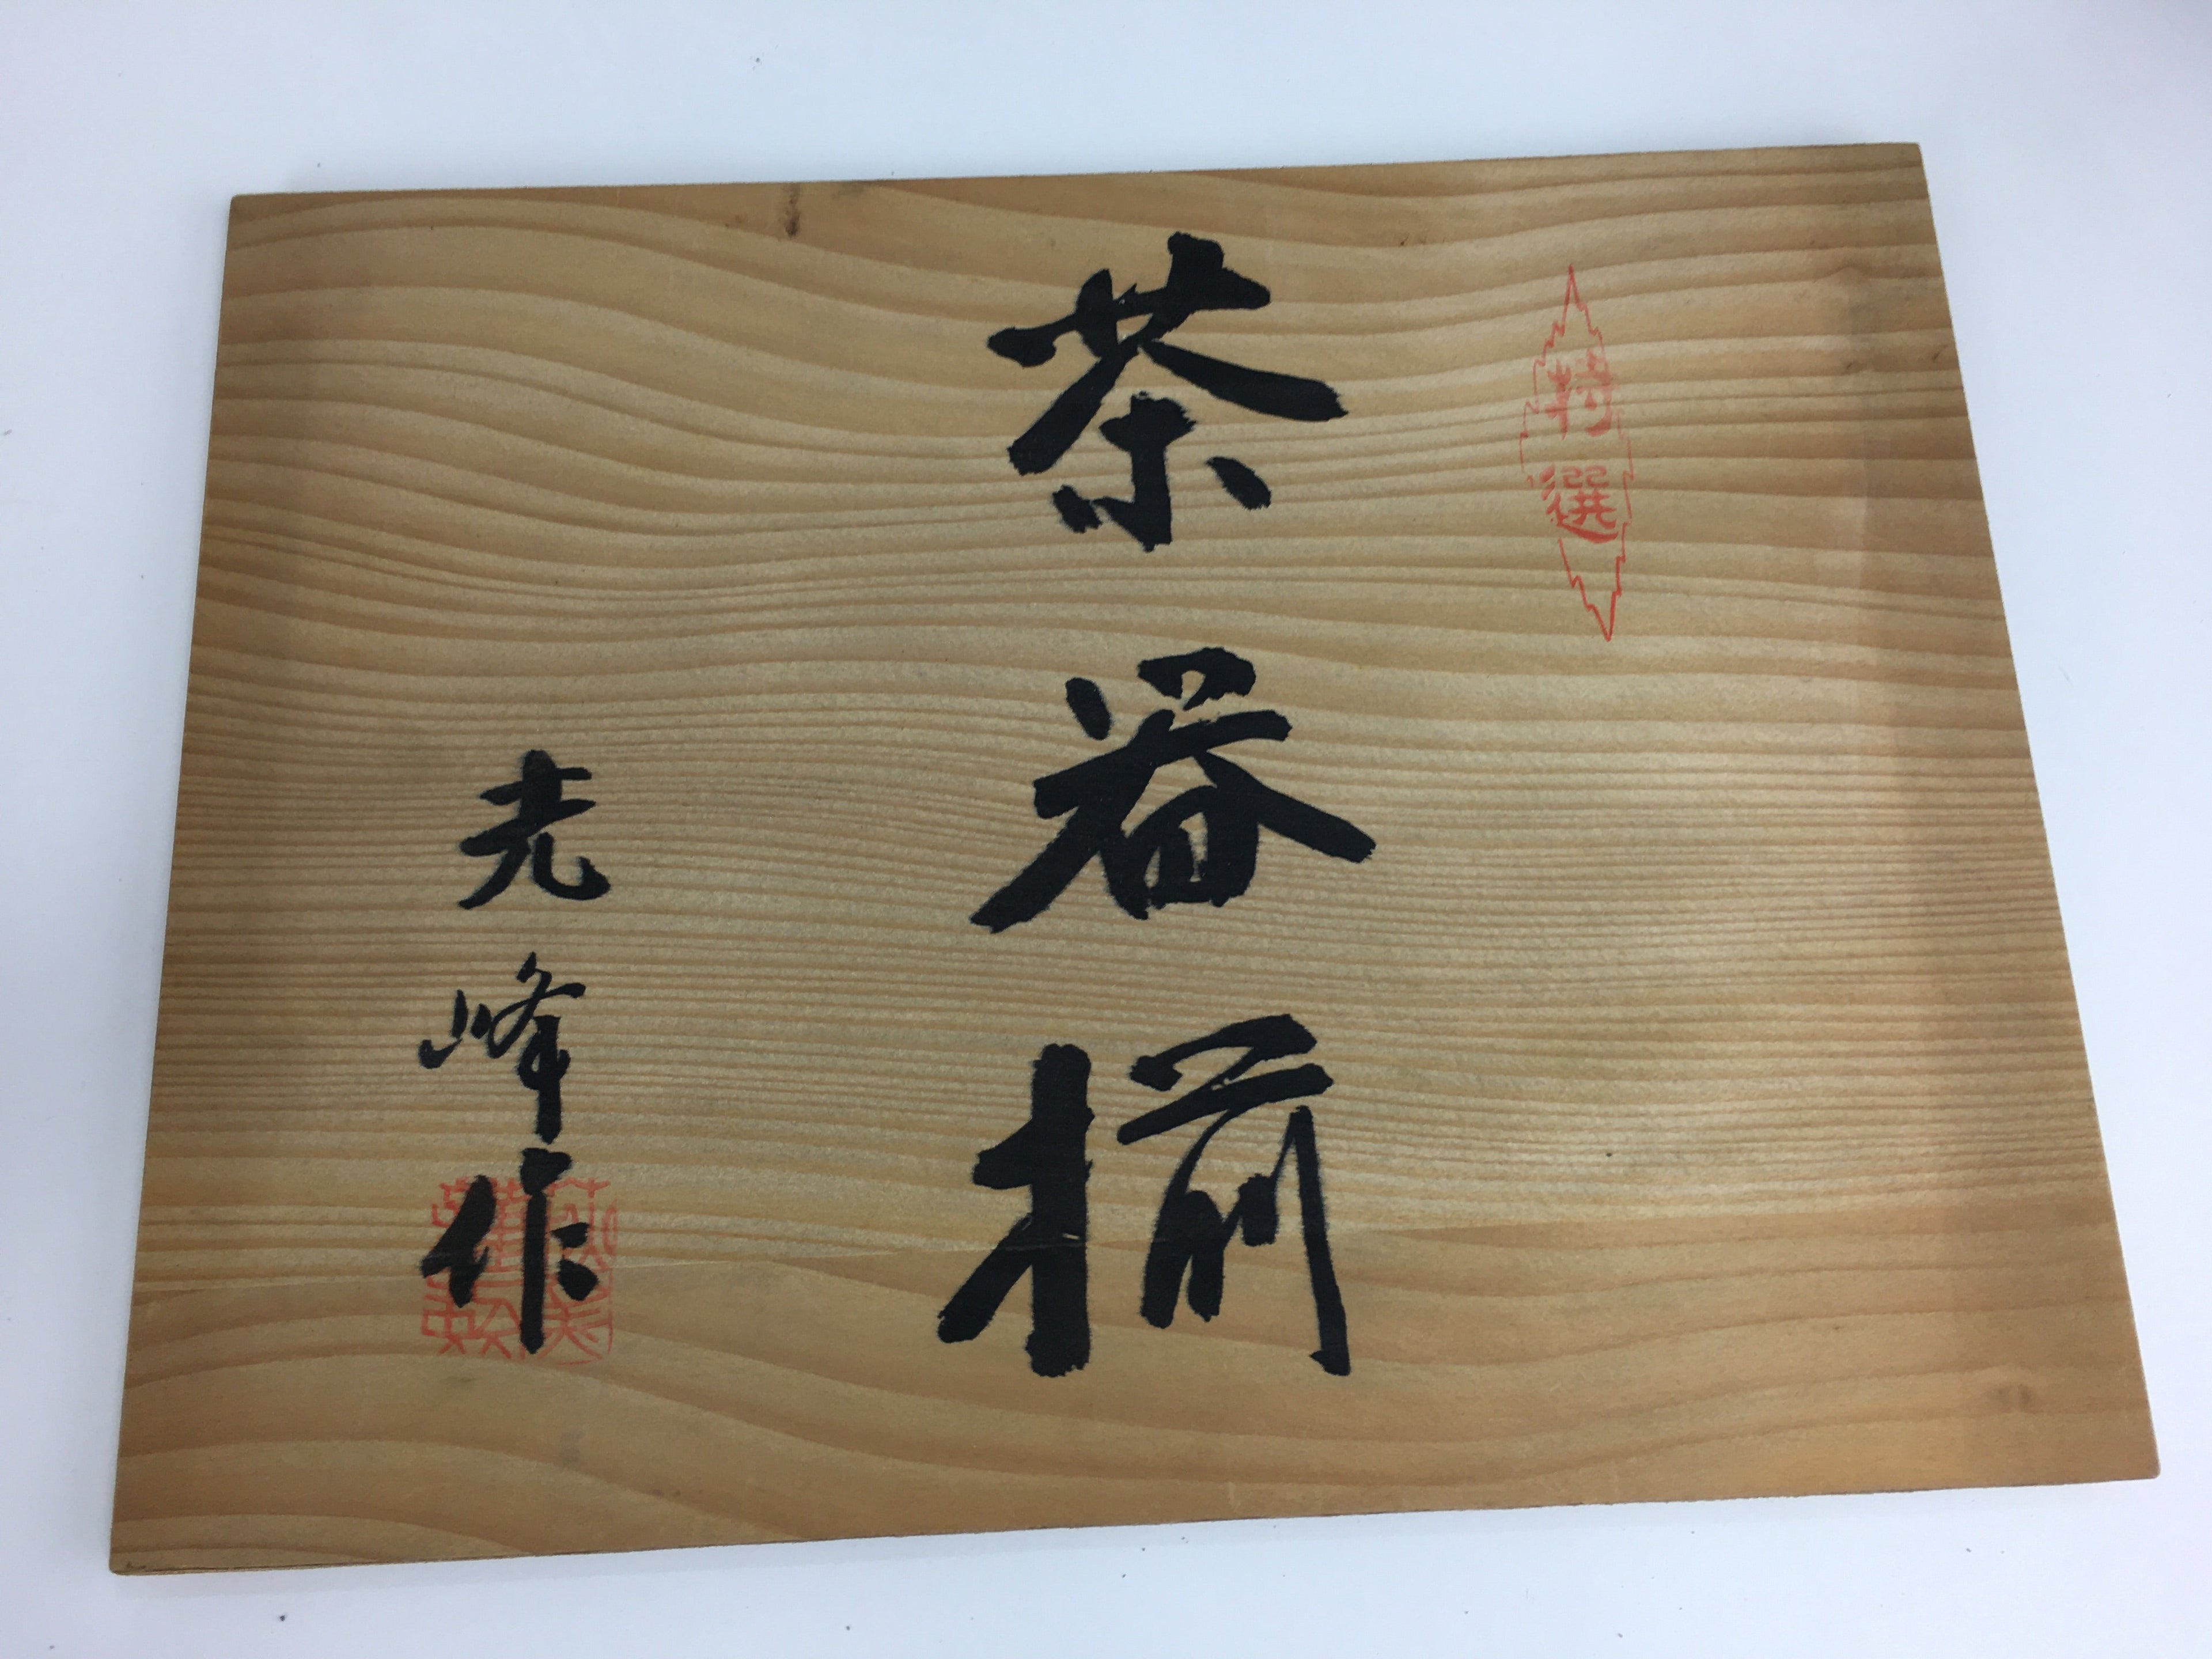 特選
茶器揃
光峰作